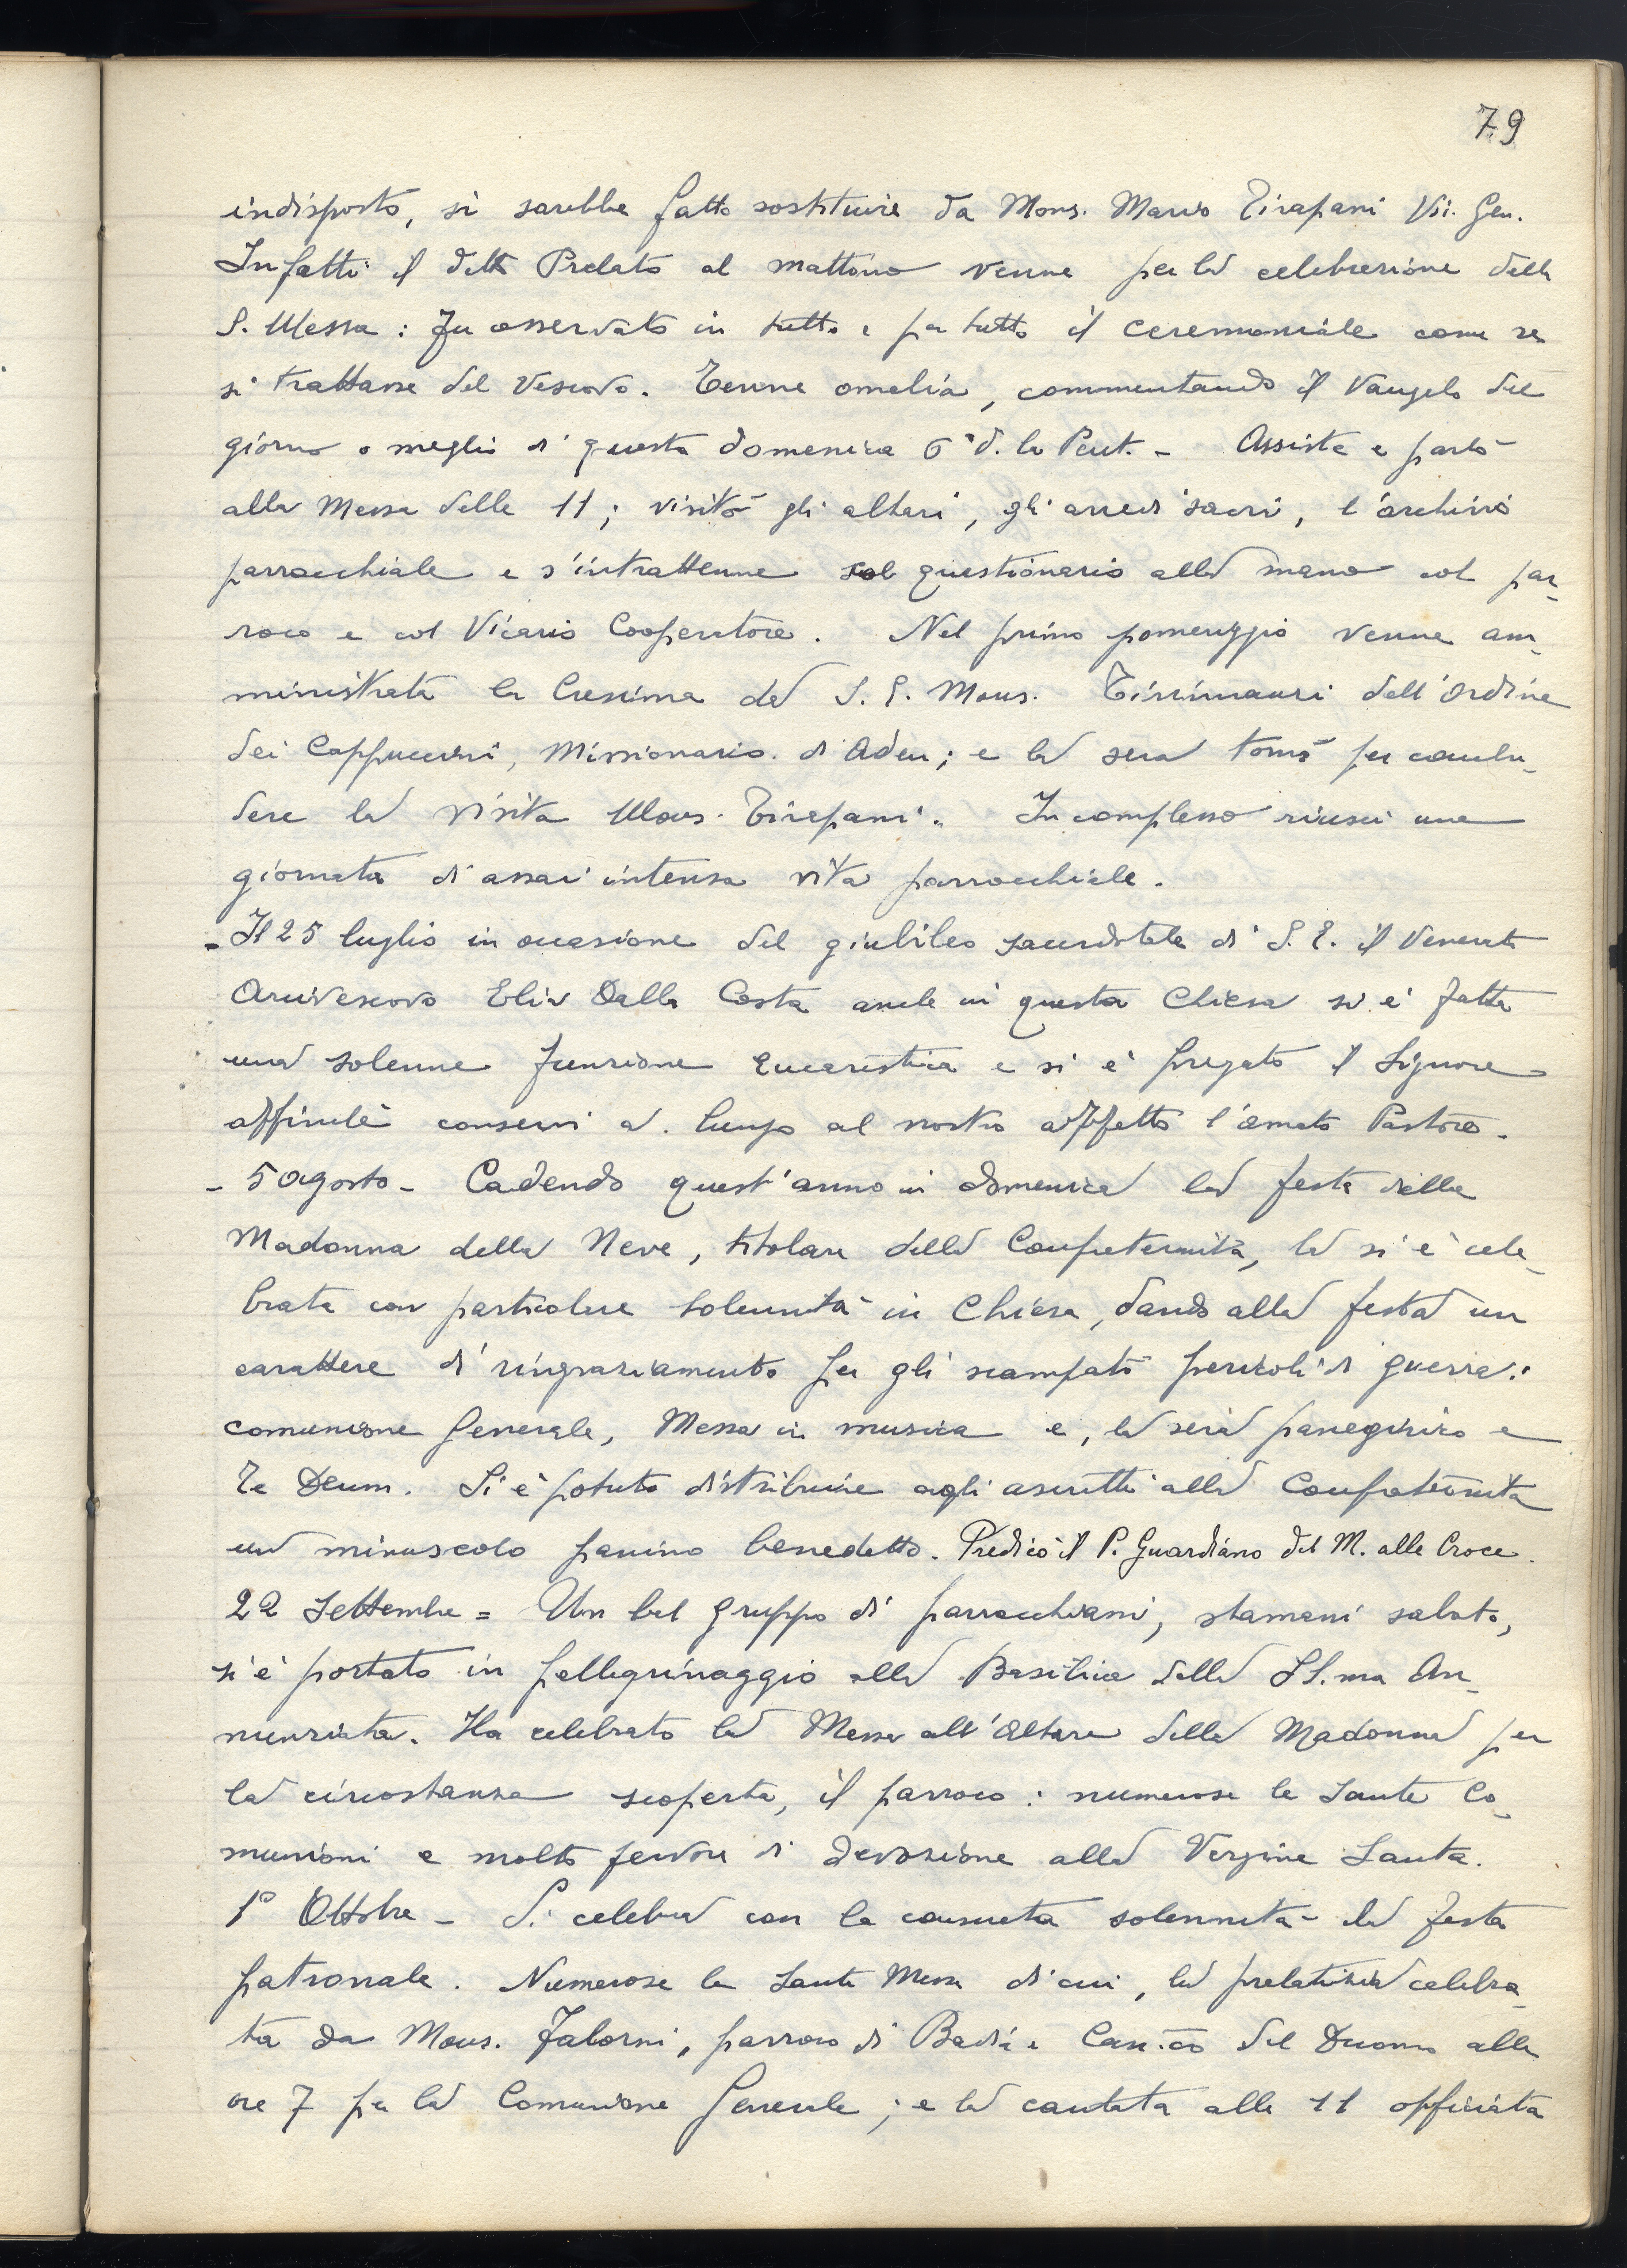 79
indisposto, si sarebbe fatto sostituire da Mons. Mario Tirapani Vic. Gen.
Infatti il detto Prelato al mattino venne per la celebrazione della
S. Messa: fu osservato in tutto e per tutto il ceremoniale come se
si trattasse del Vescovo. Tenne omelia, commentando il Vangelo del
giorno o meglio di questa domenica 6ª d. la Pent. - Assistè e parlò
alla Messa delle 11; visitò gli altari, gli arredi sacri, l'archivio
parrocchiale e s'intrattenne col questionario alla mano col par-
roco e col Vicario Cooperatore. Nel primo pomeriggio venne am-
ministrata la Cresima da S. E. Mons. Tirinnanzi dell'Ordine
dei Cappuccini, Missionario di Aden; e la sera tornò per conclu-
dere la visita Mons. Tirapani. In complesso riuscì una
giornata di assai intensa vita parrocchiale.
- Il 25 luglio in occasione del giubileo sacerdotale di S. E. il Venerato
Arcivescovo Elia Dalla Costa anche in questa Chiesa si è fatta
una solenne funzione Eucaristica e si è pregato il Signore
affinchè conservi a lungo al nostro affetto l'amato Pastore.
- 5 agosto - Cadendo quest'anno in domenica la festa della
Madonna della Neve, titolare della Confraternita, la si è cele-
brata con particolare solennità in Chiesa, dando alla festa un
carattere di ringraziamento per gli scampati pericoli di guerra:
comunione generale, Messa in musica e, la sera panegirico e
Te Deum. Si è potuto distribuire agli ascritti alla Confraternita
un minuscolo panino benedetto. Predicò il P. Guardiano del M. alle Croce.
22 Settembre = Un bel gruppo di parrocchiani, stamani sabato,
si è portato in pellegrinaggio alla Basilica della SS.ma An-
nunziata. Ha celebrato la Messa all'Altare della Madonna per
la circostanza scoperta, il parroco: numerose le Sante Co-
munioni e molto fervore di devozione alla Vergine Santa.
1° Ottobre - Si celebra con la consueta solennità la festa
patronale. Numerose le Sante Messe di cui, la prelatizia celebra-
ta da Mons. Falorni, parroco di Badia e Can.co del Duomo alle
ore 7 per la Comunione Generale; e la cantata alle 11 officiata